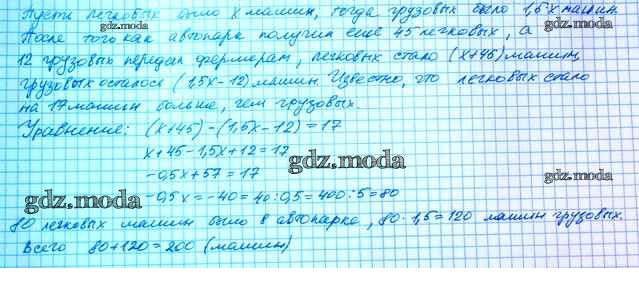 Пусть легковых было х машин, тогда грузовых было 1,5х машин.
После того как автопарк получил ещё 45 легковых, а
12 грузовых передал фермерам, легковых стало (х+45) машин,
грузовых осталось (1,5х-12) машин. Известно, что легковых стало
на 17 машин больше, чем грузовых.
Уравнение: (х+45)-(1,5х-12)=17
х+45-1,5х+12=17
gdz.moda
gdz.moda
-0,5х+57=17
gdz.moda
-0,5х=-40=40:0,5=400:5=80
gdz.moda
80 легковых машин было в автопарке, 80·1,5=120 машин грузовых.
Всего 80+120=200 (машин)